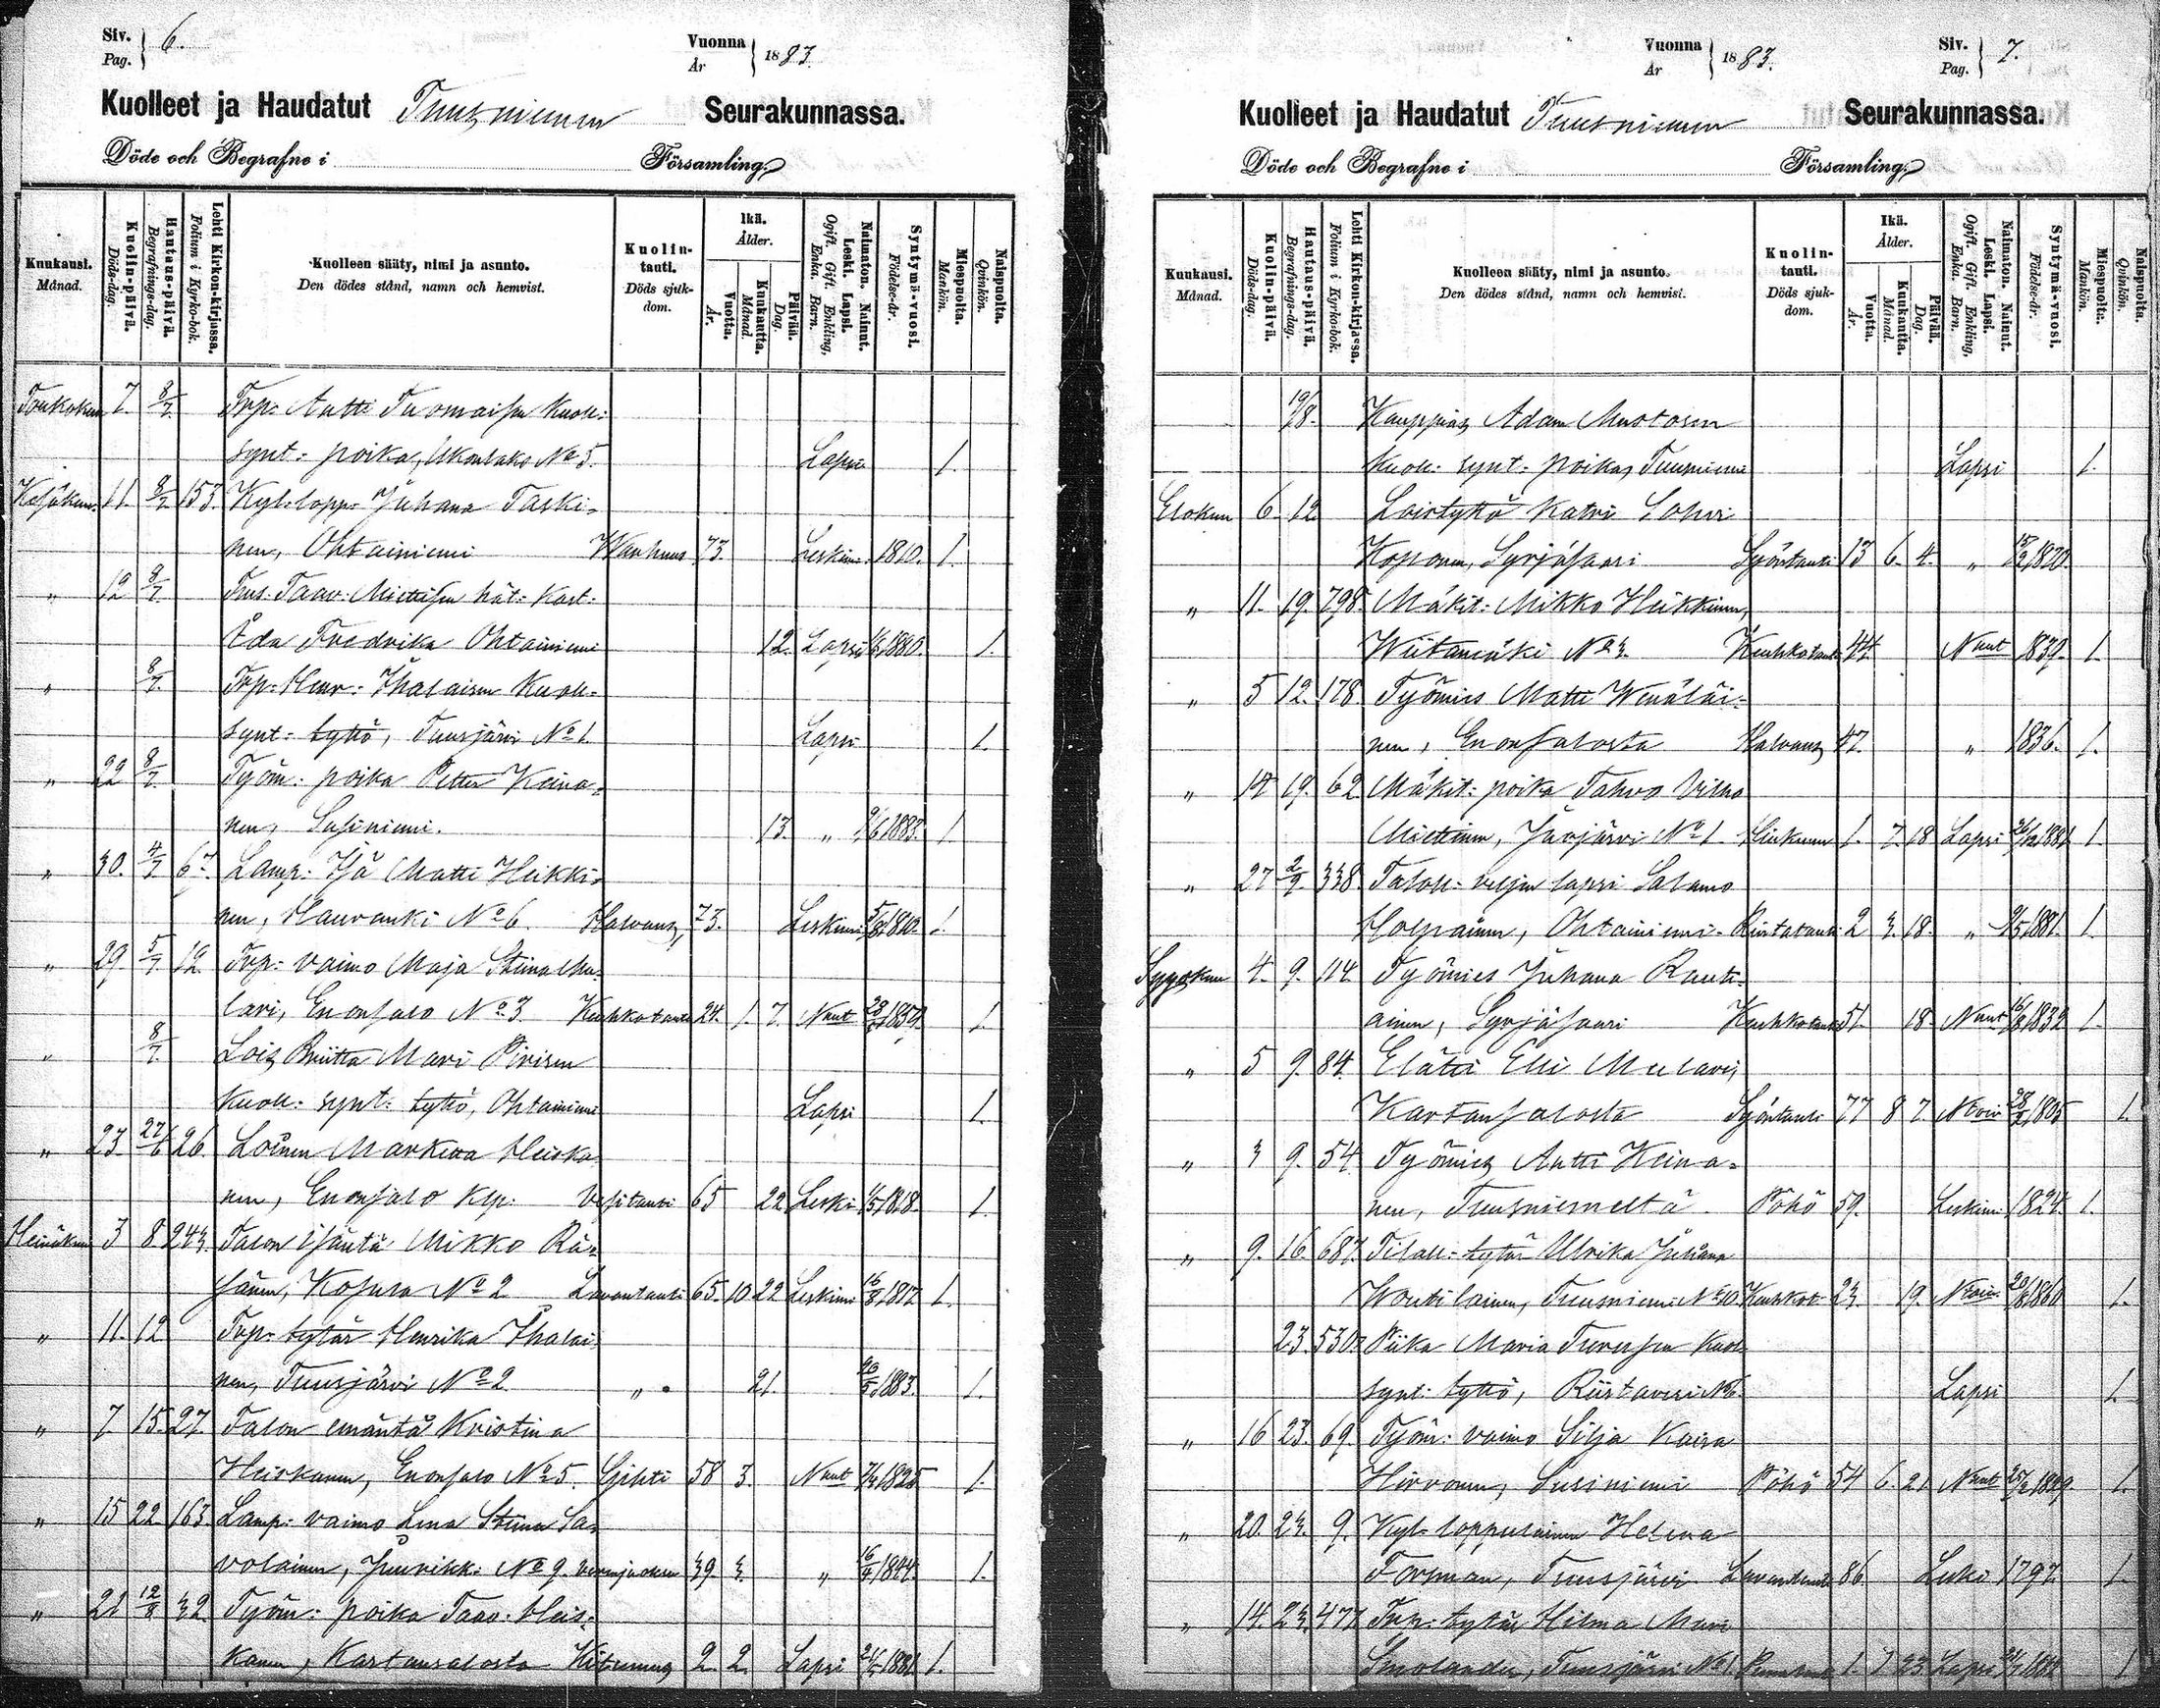 Siv. Pag. 6.
Vuonna År 1883.
Kuolleet ja Haudatut Tuusniemen Seurakunnassa.
Döde och Begrafne i Församling.
Kuukausi. Månad.
Kuolin-päivä. Döds-dag.
Hautaus-päivä. Begrafnings-dag.
Lehti Kirkon-kirjassa. Folium i Kyrko-bok.
Kuolleen sääty, nimi ja asunto. Den dödes stånd, namn och hemvist.
Kuolin-tauti. Döds sjuk-dom.
Ikä. Ålder.
Vuotta. År.
Kuukautta. Månad.
Päivää. Dag.
Naimaton. Nainut. Leski. Lapsi. Ogift. Gift. Enkling, Enka. Barn.
Syntymä-vuosi. Födelse-år.
Miespuolta. Mankön.
Naispuolta. Qvinkön.
Toukokuu 7. 8/7. Trp: Antti Tuomaisen kuoll:
synt: poika, Ukonlaks No 5. Lapsi 1.
Kesäkuu. 11. 8/7. 153. Kyl. lopp: Juhana Taski-
nen, Ohtainiemi Wanhuus 73. Leskimi. 1810. 1.
„ 12 8/7. Taav: Miettisen kast:
Eda Fredrika Ohtainiemi 12. Lapsi 1880. 1.
„ 8/7. Trp: Henr: Ihalaisen kuoll:
synt: tyttö, Tuusjärvi No 1. Lapsi 1.
„ 22 8/7. Työm: poika Petter Keina-
nen, Susiniemi. 13. „ 9/6 1883. 1
„ 30. 4/7 67. Lamp: Isä Matti Heikki-
nen, No 6. Halvaus, 73. Leskimi 1810. 1.
„ 29. 5/7. 12. Trp: vaimo Maja Stiina Mu-
lari, Enonsalo No 3. Keuhkotauti 24. 1. 7. Naut 1.
„ 8/7. Lois Briitta Mari Pirisen
kuoll: synt: tyttö, Ohtainiemi Lapsi 1.
„ 23. 27/6 26. Loinen Markeeta Heiska-
nen, Enonsalo Klp. Vesitauti 65 22. Leski 1/5 1818. 1.
Heinäkuu 3 8. 243. Talon isäntä Mikko Rä-
sänen, Kosula No 2 Lavantauti 65. 10 22 Leskimi 16/8 1817. 1.
„ 11. 12 Trp: tytär Henrika Ihalai-
nen, Tuusjärvi No 2 „ 21. 20/5 1883. 1.
„ 7. 15. 27. Talon emäntä Kristina
Heiskanen, Enonsalo No 5. 58 3. Naut 7/4 1825 1.
„ 15 22. 163. Lamp: vaimo Lena Stiina Sa-
volainen, Juurikk: No 9. verenjuoksu 39. 3. „ 16/4 1844. 1.
„ 21 12/8 32. Työm: poika Taav. Heis-
kanen, Kartansalosta Kitumus 2. 2. Lapsi 21/5 1881. 1.
Vuonna År 1883.
Siv. Pag. 7.
Kuolleet ja Haudatut Tuusniemen Seurakunnassa.
Döde och Begrafne i Församling.
Kuukausi. Månad.
Kuolin-päivä. Döds-dag.
Hautaus-päivä. Begrafnings-dag.
Lehti Kirkon-kirjassa. Folium i Kyrko-bok.
Kuolleen sääty, nimi ja asunto. Den dödes stånd, namn och hemvist.
Kuolin-tauti. Döds sjuk-dom.
Ikä. Ålder.
Vuotta. År.
Kuukautta. Månad.
Päivää. Dag.
Naimaton. Nainut. Leski. Lapsi. Ogift. Gift. Enkling, Enka. Barn.
Syntymä-vuosi. Födelse-år.
Miespuolta. Mankön.
Naispuolta. Qvinkön.
19/8. Kauppias Adam Mustosen
kuoll: synt: poika, Tuusniemi Lapsi 1.
Elokuu 6. 12 Loistyttö Katri Sohvi
Koponen, Syrjäsaari Syöntauti 13 6. 4. „ 1.
„ 11. 19. 798. Mäkit: Mikko Heikkinen,
Wiitamäki No 3. Keuhkotauti 44. Naut 1839. 1.
„ 5 12. 178. Työmies Matti Wenäläi-
nen, Enonsalosta Halvaus 47. „ 1836. 1.
„ 14 19. 62. Mäkit: poika Tahvo Vilho
Miettinen, Juojärvi No 1. 1. 7. 18 Lapsi 26/12 1881. 1.
„ 27 2/9. 338. Taloll: veljen lapsi Salamo
Holpainen, Ohtainiemi. Rintatauti 2 3. 18. „ 9/5 1881. 1.
Syyskuu 4. 9. 114. Työmies Juhana Rauti-
ainen, Syrjäsaari Keuhkotauti 51. 18. Naut 16/8 1832 1.
„ 5 9. 84. Elätti Elli Mulari,
Kartansalosta Syöntauti 77 8 7. 28/12 1805 1.
„ 3 9. 54 Työmies Antti Keina-
nen, Tuusniemeltä. Pöhö 59. Leskimi 1824. 1.
„ 9. 16. 687. Tilall: tytär Ulrika Juliana
Woutilainen, Tuusniemi No 10. Keuhkot: 23 19. 20/8 1860 1.
23. 530. Piika Maria Turusen kuol-
synt: tyttö, Riistavesi Lapsi 1.
„ 16 23. 69. Työm: vaimo Silja Kaisa
Hirvonen, Susiniemi Pöhö 54 6. 21 Naut 25/2 1829. 1.
„ 20. 23. 9. Kyl. loppulainen Helena
Forsman, Tuusjärvi Lavantauti 86. Leski 1797. 1.
„ 14. 23. 477. Trp: tytär Hilma Mari
Smolander, Tuusjärvi No 1. 1. 23. Lapsi 1